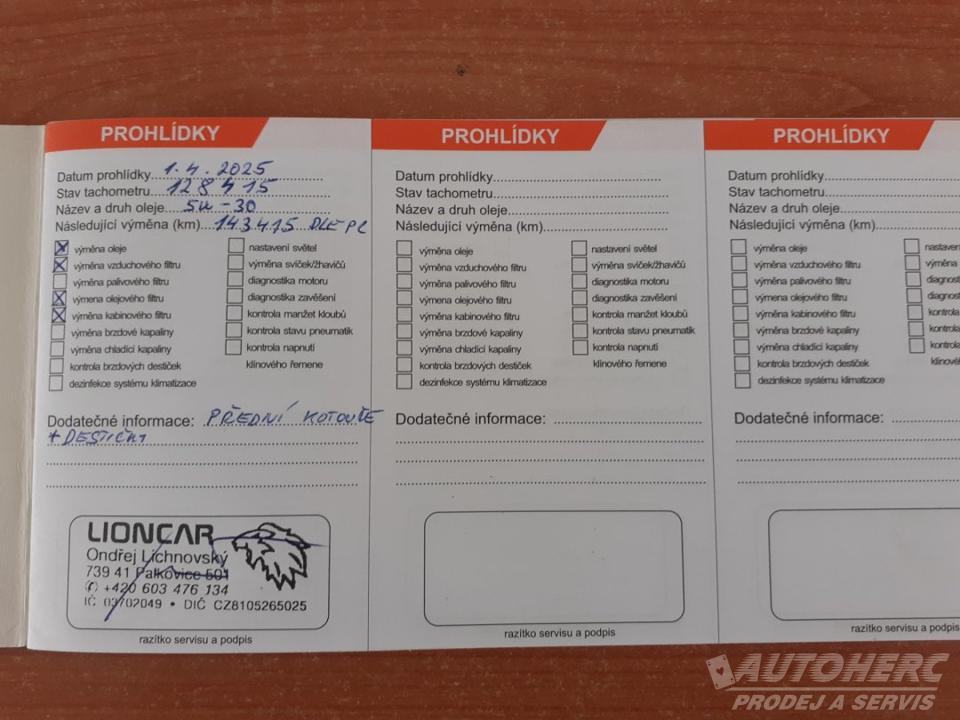 PROHLÍDKY
Datum prohlídky 1.4.2025
Stav tachometru 128415
Název a druh oleje 5W-30
Následující výměna (km) 143415 DLE PC
výměna oleje
výměna vzduchového filtru
výměna palivového filtru
výmena olejového filtru
výměna kabinového filtru
výměna brzdové kapaliny
výměna chladící kapaliny
kontrola brzdových destiček
dezinfekce systému klimatizace
nastavení světel
výměna svíček/žhavičů
diagnostika motoru
diagnostika zavěšení
kontrola manžet kloubů
kontrola stavu pneumatik
kontrola napnutí
klínového řemene
Dodatečné informace: PŘEDNÍ KOTOUČE
+ DESTIČKY
LIONCAR
Ondřej Lichnovský
739 41 Palkovice 501
✆ +420 603 476 134
IČ 03702049 • DIČ CZ8105265025
razítko servisu a podpis
PROHLÍDKY
Datum prohlídky
Stav tachometru
Název a druh oleje
Následující výměna (km)
výměna oleje
výměna vzduchového filtru
výměna palivového filtru
výmena olejového filtru
výměna kabinového filtru
výměna brzdové kapaliny
výměna chladící kapaliny
kontrola brzdových destiček
dezinfekce systému klimatizace
nastavení světel
výměna svíček/žhavičů
diagnostika motoru
diagnostika zavěšení
kontrola manžet kloubů
kontrola stavu pneumatik
kontrola napnutí
klínového řemene
Dodatečné informace:
razítko servisu a podpis
PROHLÍDKY
Datum prohlídky
Stav tachometru
Název a druh oleje
Následující výměna (km)
výměna oleje
výměna vzduchového filtru
výměna palivového filtru
výmena olejového filtru
výměna kabinového filtru
výměna brzdové kapaliny
výměna chladící kapaliny
kontrola brzdových destiček
dezinfekce systému klimatizace
nastaven
výměna
diagnost
diagnost
kontrola
kontrola
kontrola
klínové
Dodatečné informace:
razítko servisu a podpis
AUTOHERC
PRODEJ A SERVIS